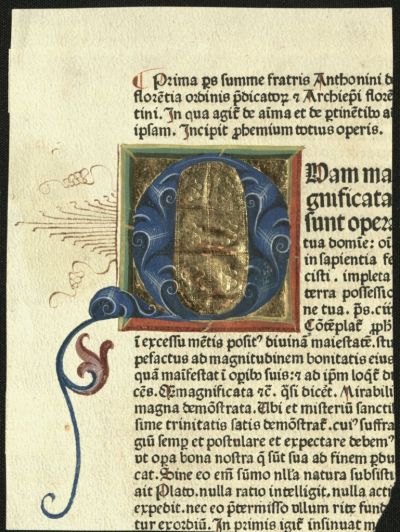 Prima ꝑs summe fratris Anthonini d
florētia ordinis p̄dicatoꝝ ⁊ Archiep̄i flore
tini. In qua agit᷑ de aīma et de ꝑtinētib⁹ a
ipsam. Incipit ꝓhemium totius operis.
Quam ma
gnificata
sunt opera
tua domīe: oī
in sapientia fe
cisti. impleta
terra possessio
ne tua. ps̄. ciii
Cōtēplat᷑
ī excessu mētis posit⁹ divinā maiestatē. stu
pefactus ad magnitudinem bonitatis eius
quā māifestat ī oꝑib⁹ suis: ⁊ ad ip̄m loq̄t᷑ di
cēs. Qmagnificata ⁊c̄. q̄si dicēt. Mirabili
magna demōstrata. Ubi et misteriū sancti
sime trinitatis satis demōstrat᷑. cui⁹ suffra
giū semꝑ et postulare et expectare debem⁹
ut oꝑa bona nostra q̄ sūt sua ad finem ꝑdu
cat. Sine eo eīm sūmo nlla natura subsisti
ait Plato. nulla ratio intelligit. nulla acti
expedit. nec eo p̄termisso ullum rite fund
tur exordiū. In primis igit᷑ insinuat m